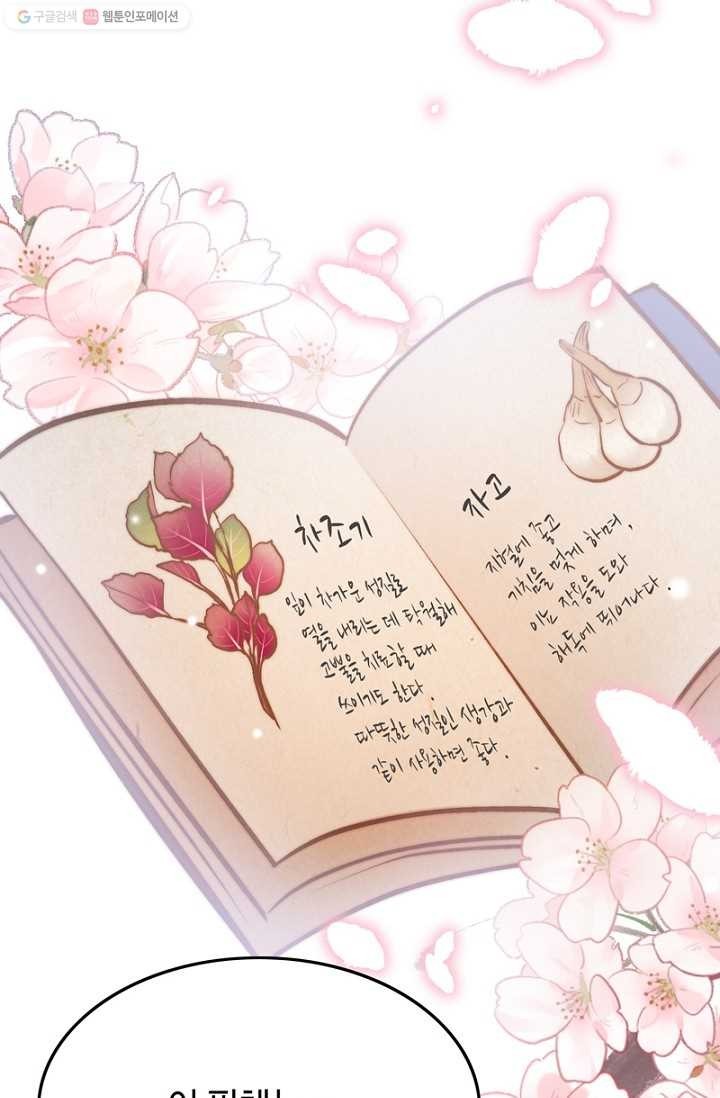 구글검색 웹툰인포메이션
차조기
잎이 차가운 성질로
열을 내리는 데 탁월해
고뿔을 치료할 때
쓰이기도 한다.
따뜻한 성질인 생강과
같이 사용하면 좋다.
자고
지혈에 좋고
기침을 멎게 하며,
이뇨 작용을 도와
해독에 뛰어나다.